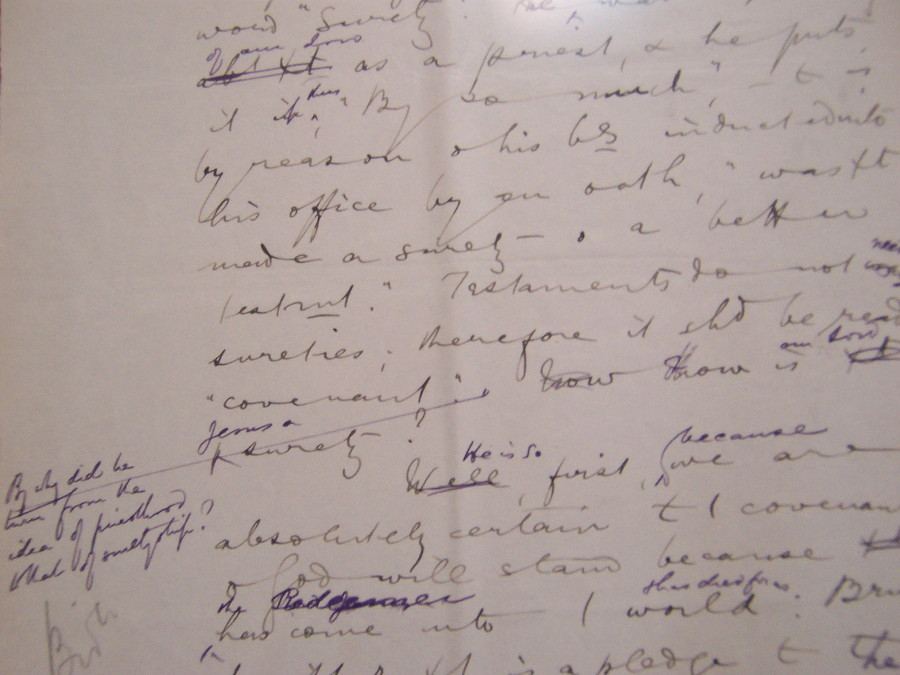 word "Surety".
of our Lord
as a priest, & he puts
it thus "By so much", - t - is
by reason o his bg inducted into
his office by an oath, "was Xt
made a surety - o a better
testmt." Testaments do not need
sureties; therefore it shd be read
"covenant". how Know is our Lord
Jesus a
surety?
He is so because
Well, first, we are
absolutely certain t / covenant
o God will stand because
the Redeemer
has come into / world & has died for us.
is a pledge t the
By why did he
turn from the
idea of priesthood
to that of suretyship?